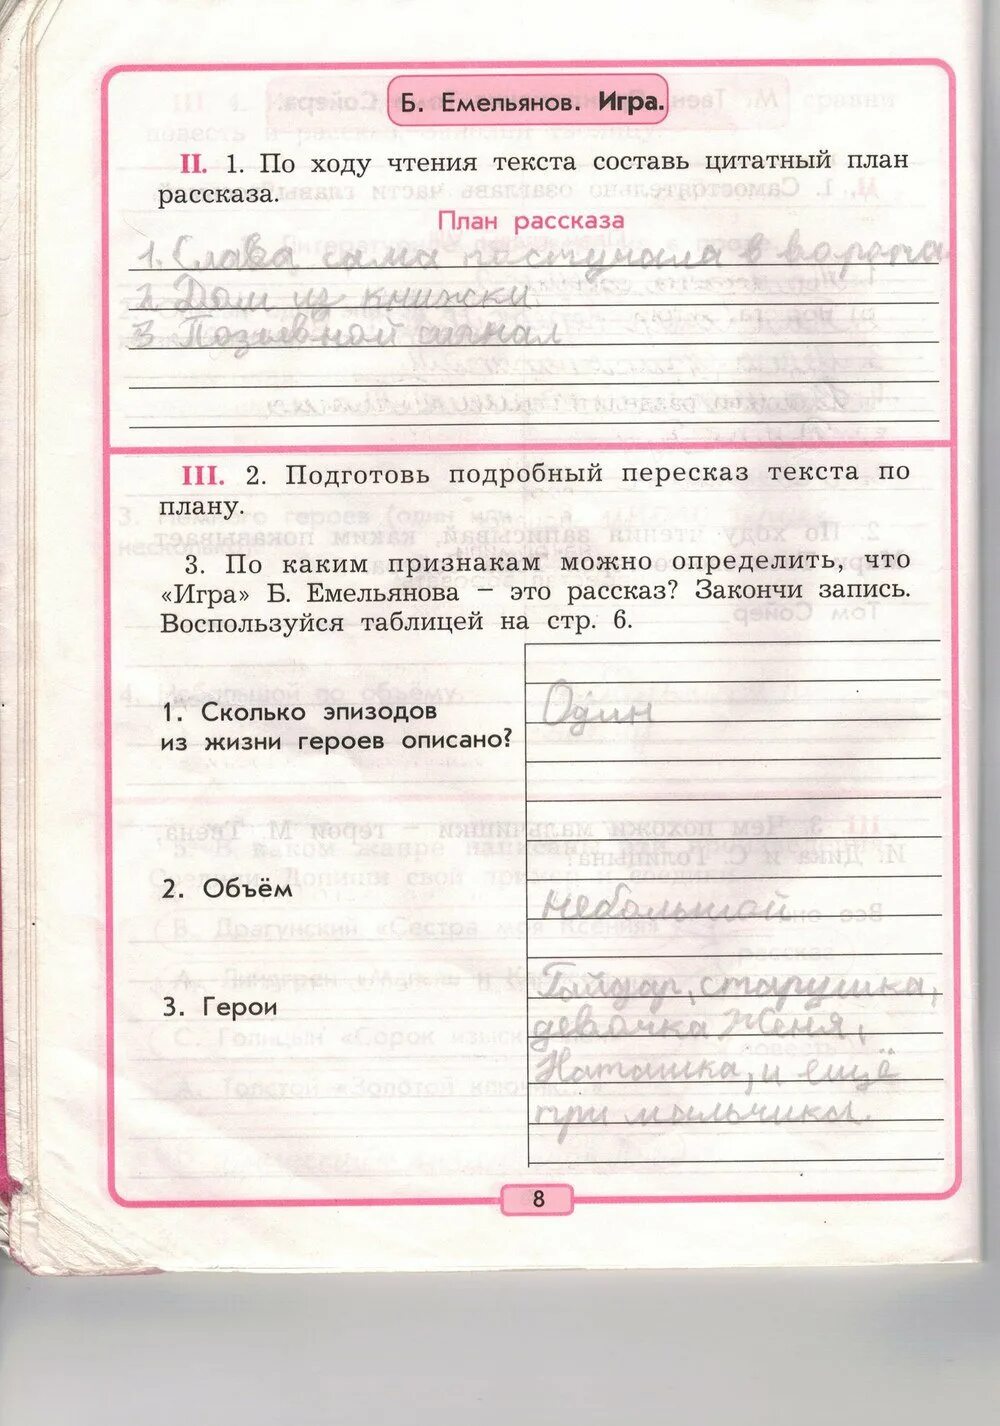 Б. Емельянов. Игра.
II. 1. По ходу чтения текста составь цитатный план
рассказа.
План рассказа
1. Слава сама постучала в ворота
2. Дом из книжки
3 Позывной сигнал
III. 2. Подготовь подробный пересказ текста по
плану.
3. По каким признакам можно определить, что
«Игра» Б. Емельянова – это рассказ? Закончи запись.
Воспользуйся таблицей на стр. 6.
1. Сколько эпизодов
из жизни героев описано?
Один
2. Объём
небольшой
3. Герои
Гайдар, старушка,
девочка Женя,
Наташка, и ещё
три мальчика.
8